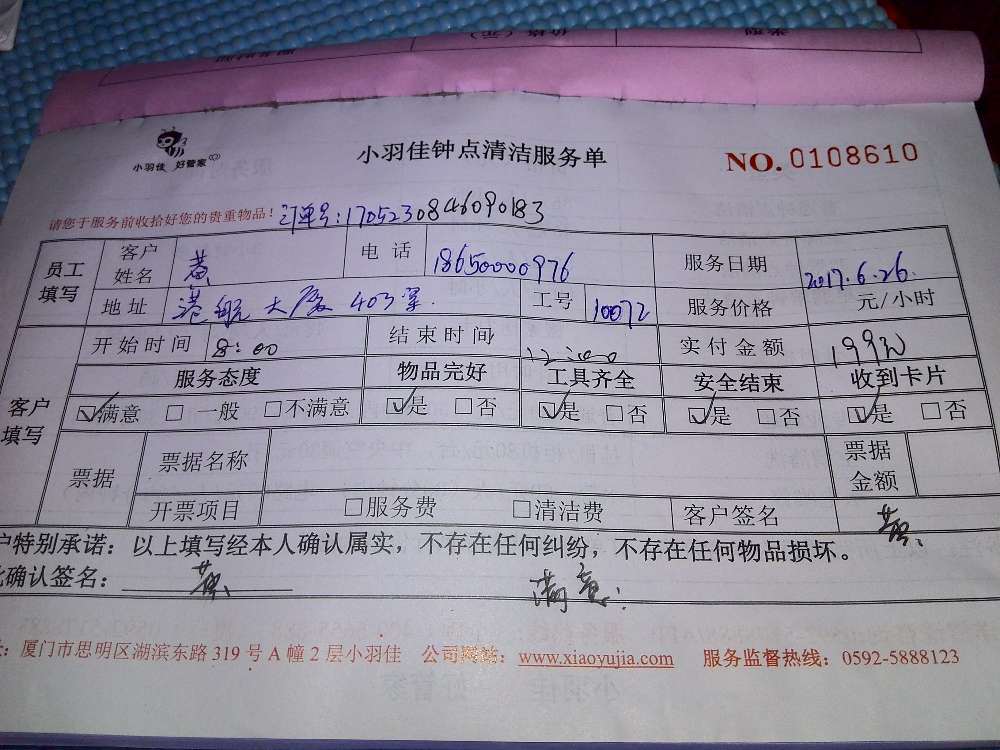 小羽佳 好管家
小羽佳钟点清洁服务单
NO.0108610
请您于服务前收拾好您的贵重物品！ 订单号：1705230846090183
员工填写 客户姓名 黄 电话 18650000976 服务日期 2017.6.26.
地址 港航大厦403室. 工号 10072 服务价格 元/小时
开始时间 8:00 结束时间 12:00 实付金额 199元
客户填写 服务态度 物品完好 工具齐全 安全结束 收到卡片
☑满意 □一般 □不满意 ☑是 □否 ☑是 □否 ☑是 □否 ☑是 □否
票据 票据名称 票据金额
开票项目 □服务费 □清洁费 客户签名 黄
户特别承诺：以上填写经本人确认属实，不存在任何纠纷，不存在任何物品损坏。
确认签名： 黄 满意.
厦门市思明区湖滨东路 319 号 A 幢 2 层小羽佳 公司网站：www.xiaoyujia.com 服务监督热线：0592-5888123